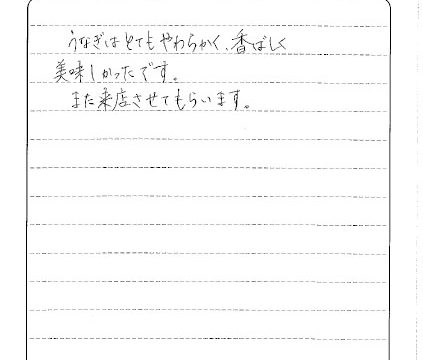 うなぎはとてもやわらかく、香ばしく
美味しかったです。
また来店させてもらいます。